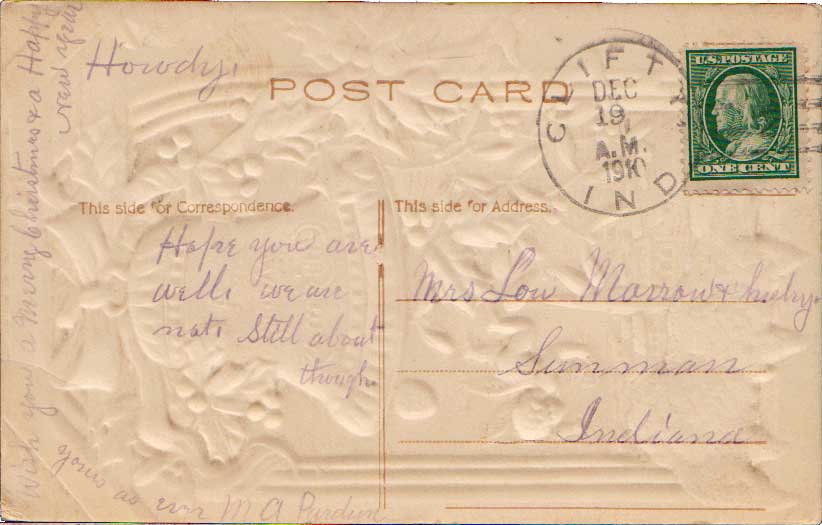 Howdy.
POST CARD
CLIFTY
DEC
19
A.M.
1910
IND
U.S. POSTAGE
ONE CENT
This side for Correspondence.
This side for Address.
Hope you are
well. we are
not. Still about
though.
Mrs Lou Morrow &
Sunman
Indiana
Wish you a Merry Christmas & a Happy
New Year
yours as ever M A